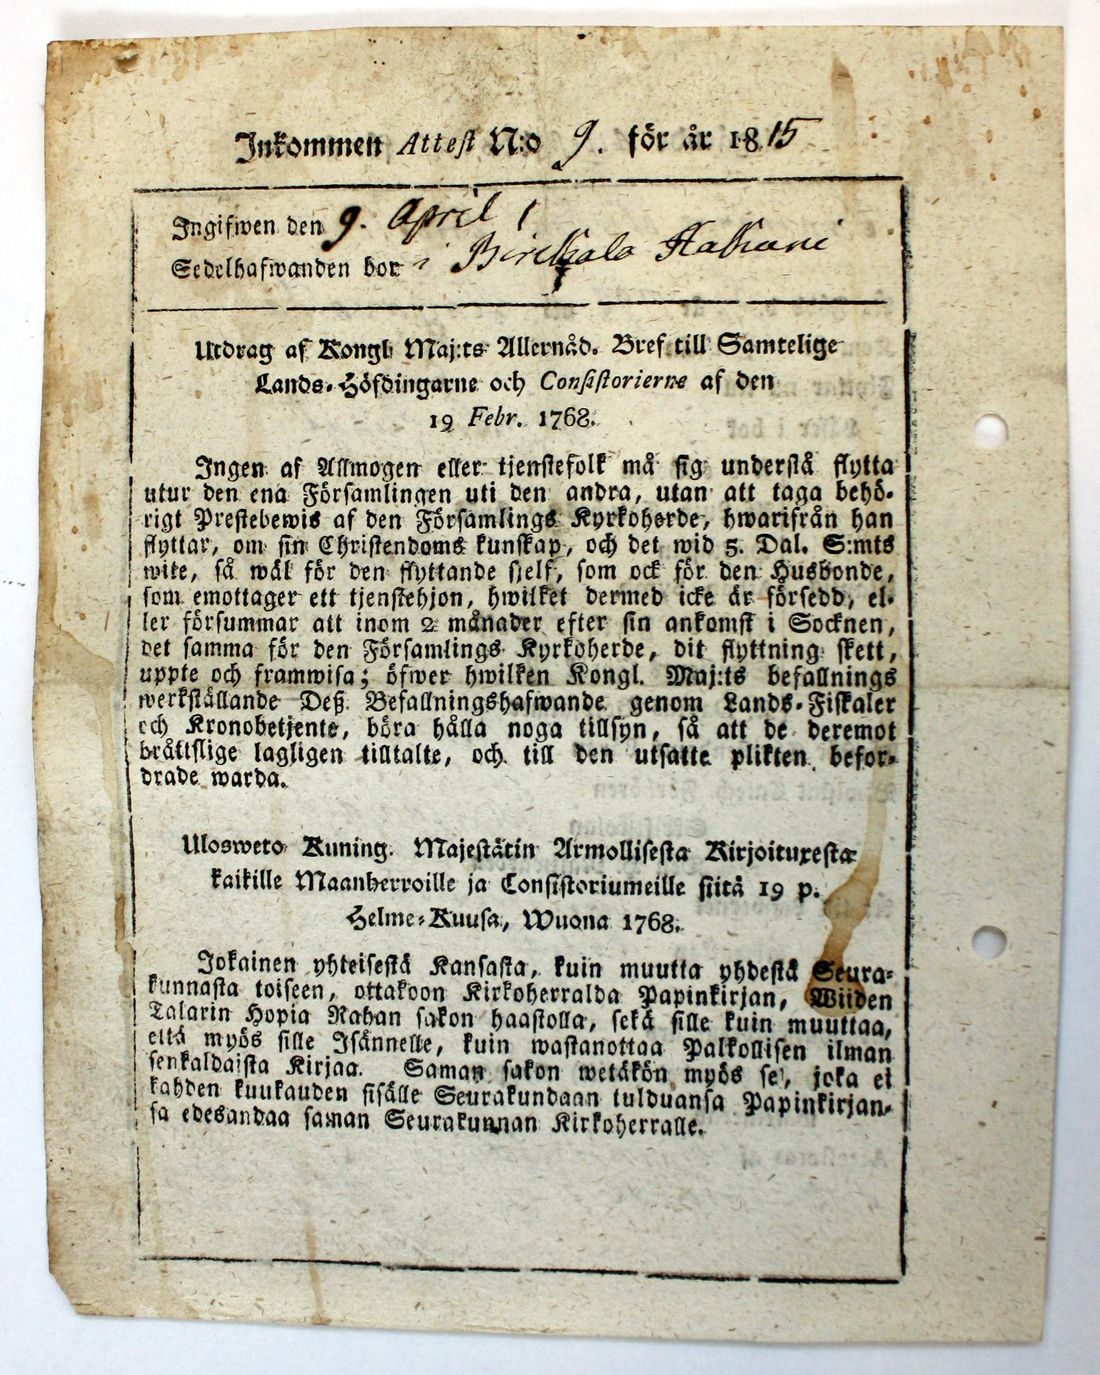 Inkommen Attest N:o 9. för år 1815
Ingifwen den 9. April
Sedelhafwanden bor i Birkkala
Utdrag af Kongl. Maj:ts Allernåd. Bref till Samtelige
Lands-Höfdingarne och Consistorierne af den
19 Febr. 1768.
Ingen af Allmogen eller tjenstefolk må sig understå flytta
utur den ena Församlingen uti den andra, utan att taga behö-
rigt Prestebewis af den Församlings Kyrkoherde, hwarifrån han
flyttar, om sin Christendoms kunskap, och det wid 5. Dal. S:mts
wite, så wäl för den flyttande sjelf, som ock för den Husbonde,
som emottager ett tjenstehjon, hwilket dermed icke är försedd, el-
ler försummar att inom 2 månader efter sin ankomst i Socknen,
det samma för den Församlings Kyrkoherde, dit flyttning skett,
uppte och framwisa; öfwer hwilken Kongl. Maj:ts befallnings
werkställande Deß Befallningshafwande genom Lands-Fiskaler
och Kronobetjente, böra hålla noga tillsyn, så att de deremot
bråttslige lagligen tilltalte, och till den utsatte plikten befor-
drade warda.
Ulosweto Kuning. Majestätin Armollisesta Kirjoituxesta
kaikille Maanherroille ja Consistoriumeille siitä 19 p.
Helme-Kuusa, Wuona 1768.
Jokainen yhteisestä Kansasta, kuin muutta yhdestä Seura-
kunnasta toiseen, ottakoon Kirkoherralda Papinkirjan, Wiiden
Talarin Hopia Rahan sakon haastolla, sekä sille kuin muuttaa,
että myös sille Isännelle, kuin wastanottaa Palkollisen ilman
senkaldaista Kirjaa. Saman sakon wetäkön myös se, joka ei
kahden kuukauden sisälle Seurakundaan tulduansa Papinkirjan-
sa edesandaa saman Seurakunnan Kirkoherralle.